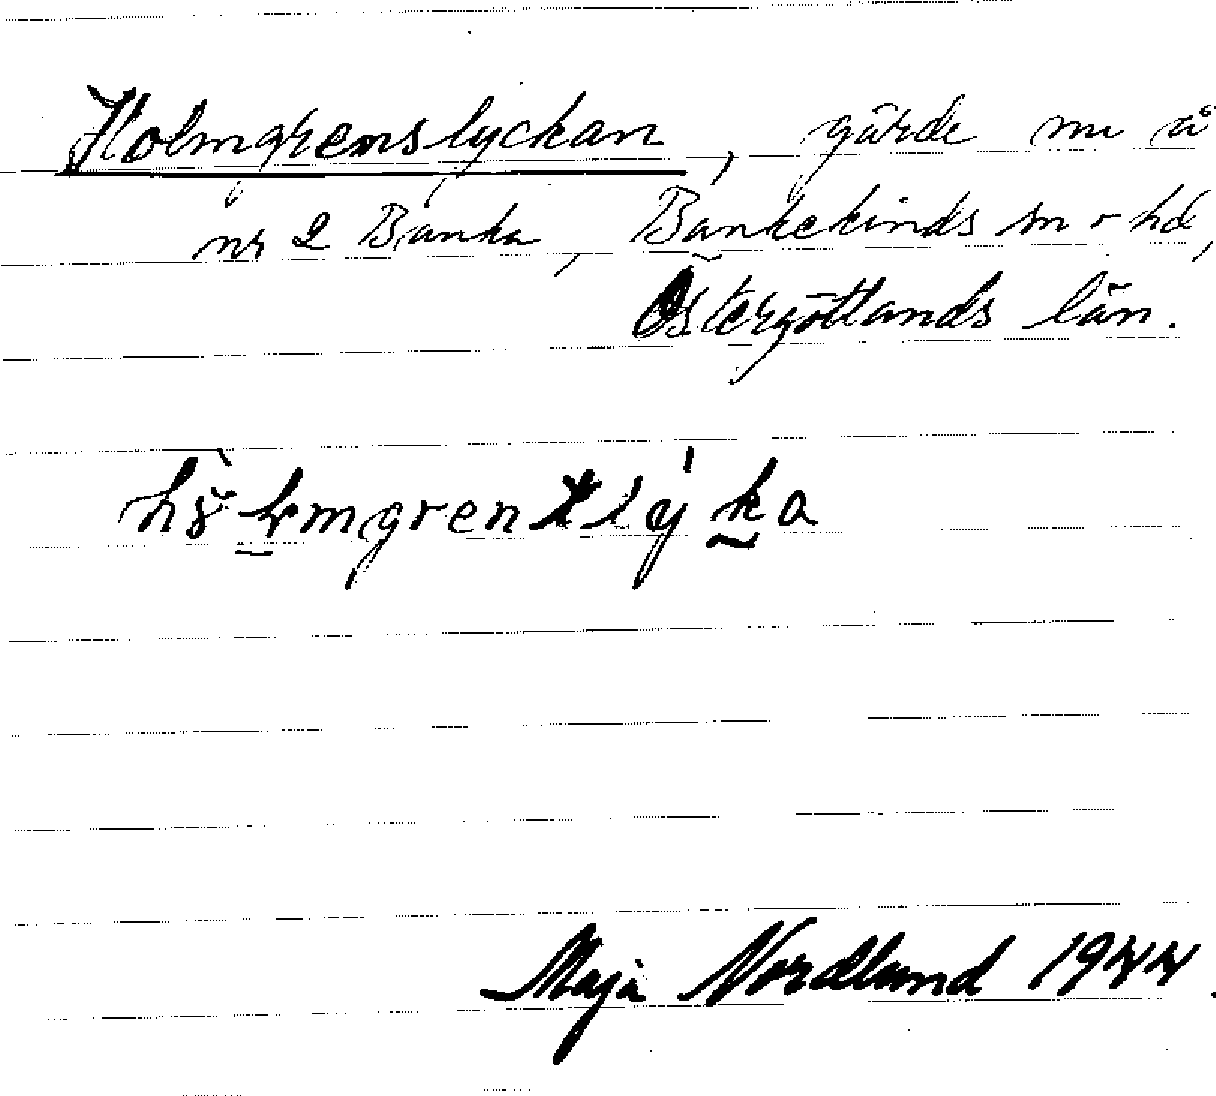 Holmgrenslyckan, gärde nu å
nr 2 Banka, Bankekinds sn o hd,
Östergötlands län.
Maja Nordlund 1944.